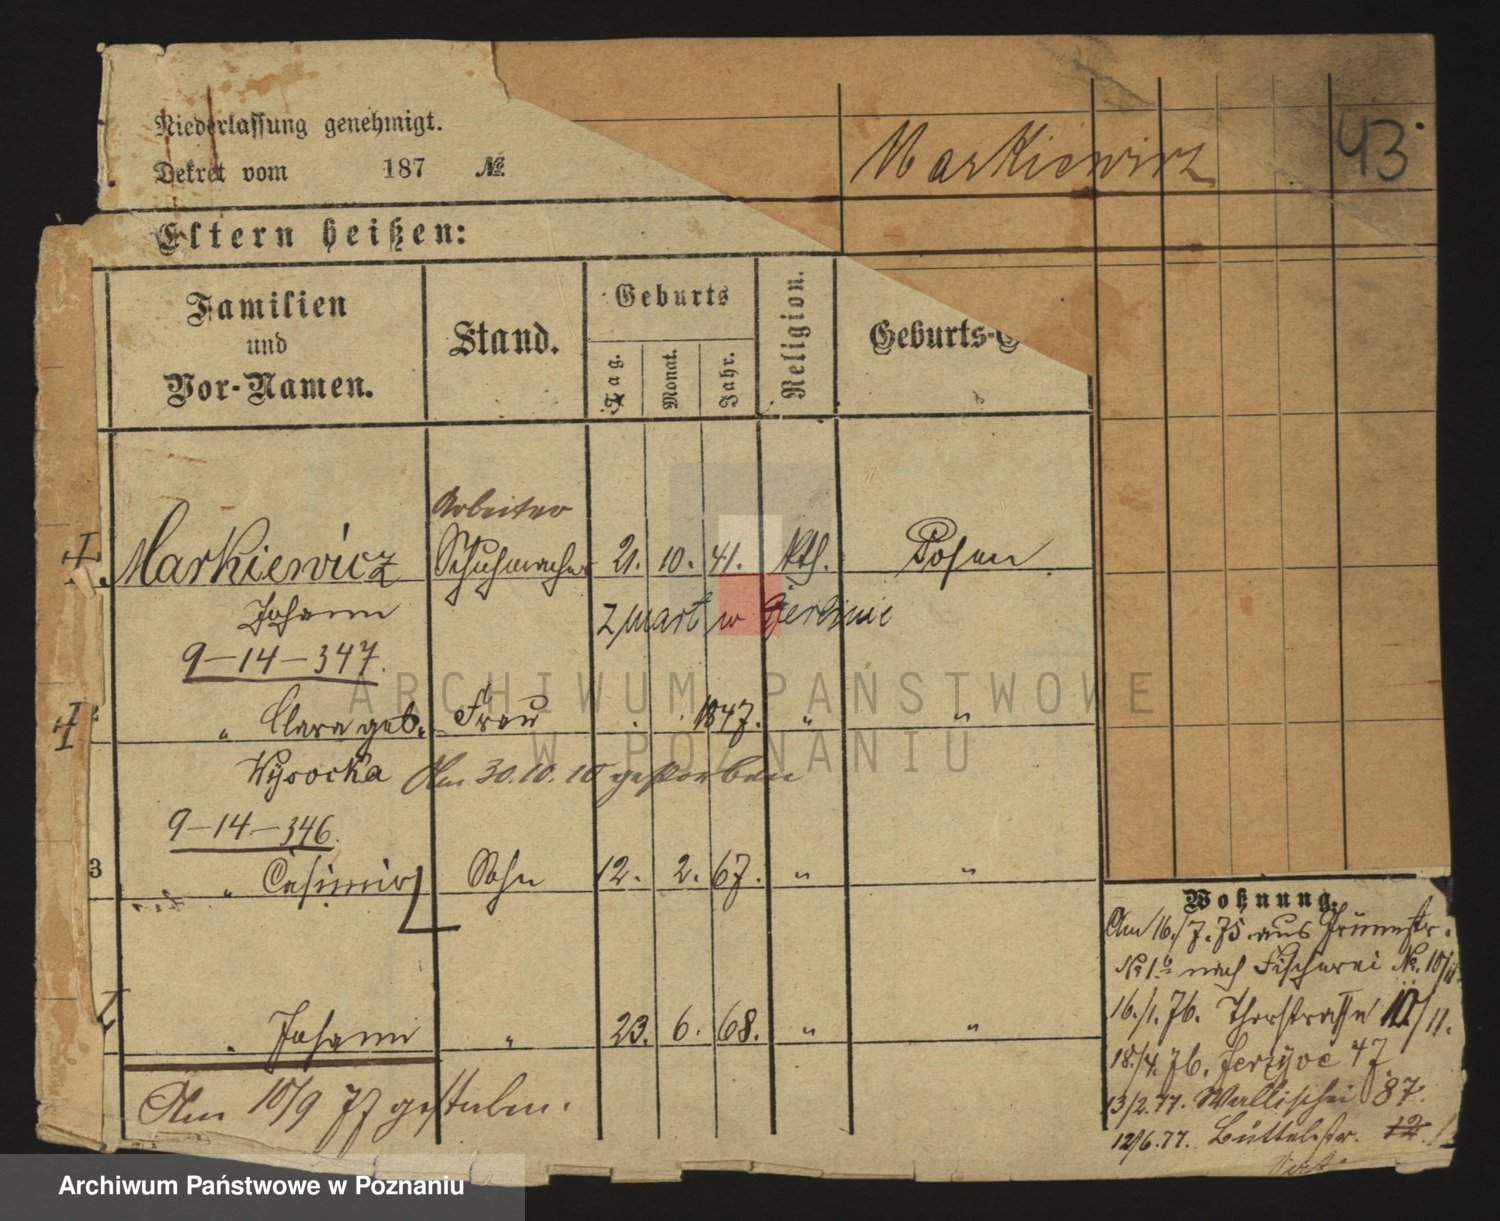 Niederlassung genehmigt.
Dekret vom 187 №
Markiewicz 43
Eltern heißen:
Familien und Vor-Namen.
Stand.
Geburts
Tag.
Monat.
Jahr.
Religion.
Geburts-
Arbeiter
Markiewicz Schuhmacher 21. 10. 41. kth. Posen
Johann
zmarł w
9-14-347.
" Clara geb. Frau 1847. " "
Wysocka Am 30.10.10 gestorben
9-14-346.
3 " Casimir Sohn 12. 2. 67. " "
" Johann " 23. 6. 68. " "
Am 10/9 77 gestorben.
Wohnung.
Am 16./7. 75. aus
nach Fischerei No. 10/
16./1. 76. Thorstrasse 10/11.
18./4. 76. Jerzyce 47
13/2. 77. Wallischei 87.
12/6. 77. Büttelstr. 12.
ARCHIWUM PAŃSTWOWE
W POZNANIU
Archiwum Państwowe w Poznaniu